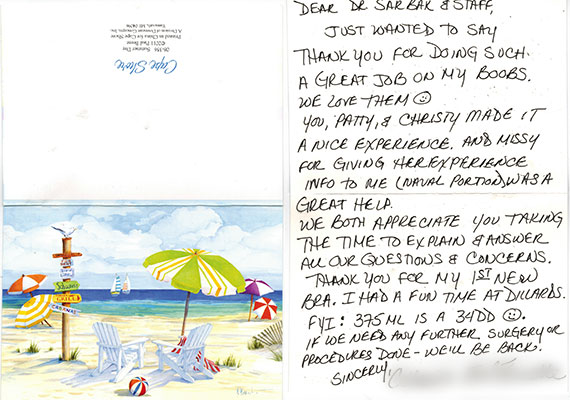 Cape Shore
26-194
Summer Day
©2011 Paul Brent
Printed in China for Cape Shore
A Division of Downeast Concepts, Inc.
Yarmouth, ME 04096
GRILL
DEAR DR SARBAK & STAFF,
JUST WANTED TO SAY
THANK YOU FOR DOING SUCH
A GREAT JOB ON MY BOOBS.
WE LOVE THEM ☺
YOU, PATTY, & CHRISTY MADE IT
A NICE EXPERIENCE. AND MISSY
FOR GIVING HER EXPERIENCE
INFO TO ME (NAVAL PORTION) WAS A
GREAT HELP.
WE BOTH APPRECIATE YOU TAKING
THE TIME TO EXPLAIN & ANSWER
ALL OUR QUESTIONS & CONCERNS.
THANK YOU FOR MY 1ST NEW
BRA. I HAD A FUN TIME AT DILLARDS.
FYI: 375 ML IS A 34DD ☺.
IF WE NEED ANY FURTHER SURGERY OR
PROCEDURES DONE - WE'LL BE BACK.
SINCERLY,